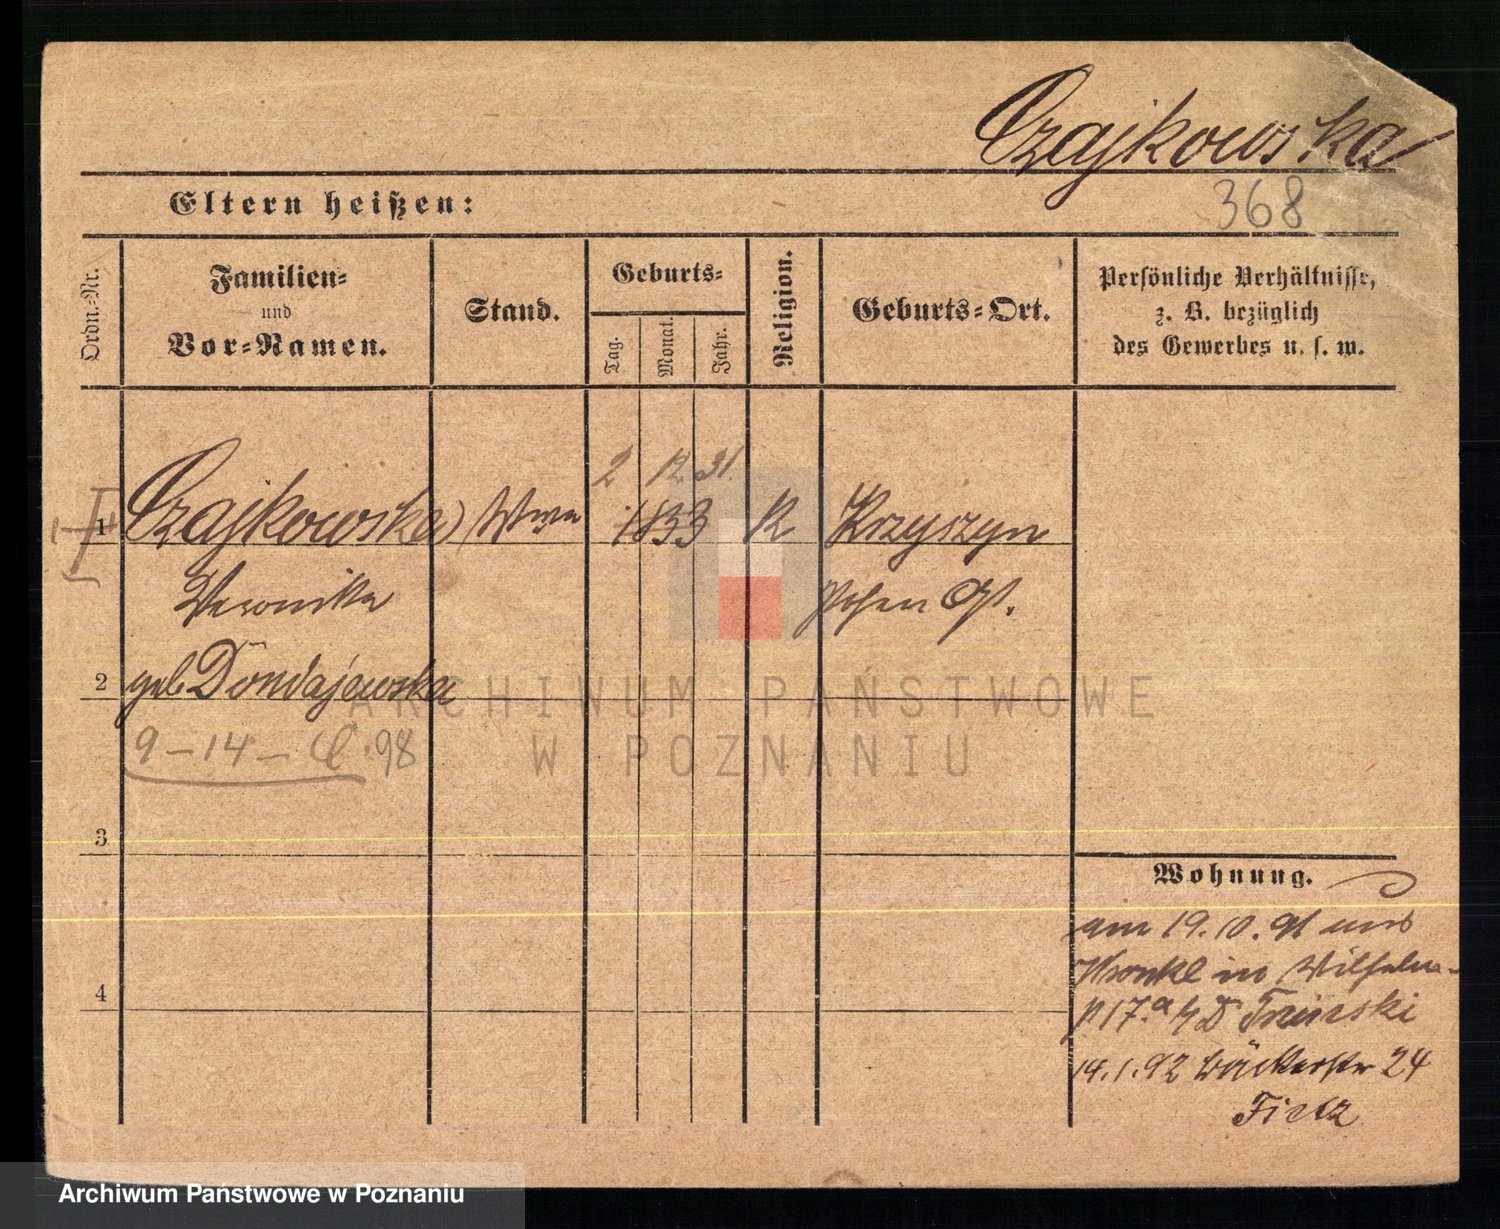 Czajkowska
368
Eltern heißen:
Ordn.-Nr.
Familien-
und
Vor-Namen.
Stand.
Geburts-
Tag.
Monat.
Jahr.
Religion.
Geburts-Ort.
Persönliche Verhältnisse,
z. B. bezüglich
des Gewerbes u. s. w.
2 12 31.
1 Czajkowska Wwe 1833 K Krzyszyn
Veronika Posen
2 geb Dondajewska
9-14- 98
3
4
Wohnung.
am 19.10.91 aus
in Wilhelm-
17.a
14.1.92 Bäckerstr 24
ARCHIWUM PAŃSTWOWE
W POZNANIU
Archiwum Państwowe w Poznaniu